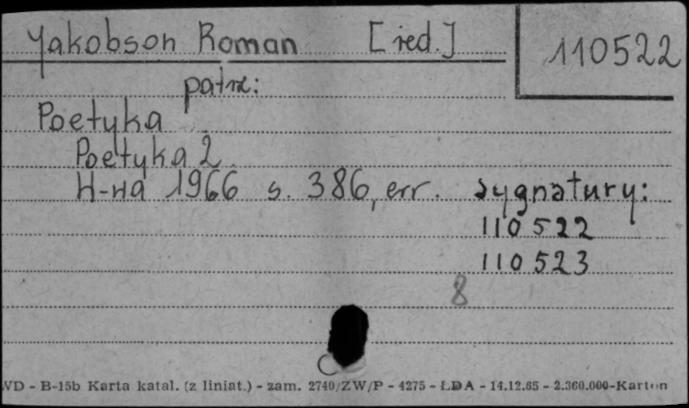 Yakobson Roman [red.]
110522
patrz:
Poetyka
Poetyka 2
H-wa 1966 s. 386, err. sygnatury:
110522
110523
8
WD - B-15b Karta katal. (z liniat.) - zam. 2740/ZW/P - 4275 - ŁDA - 14.12.65 - 2.360.000-Karton